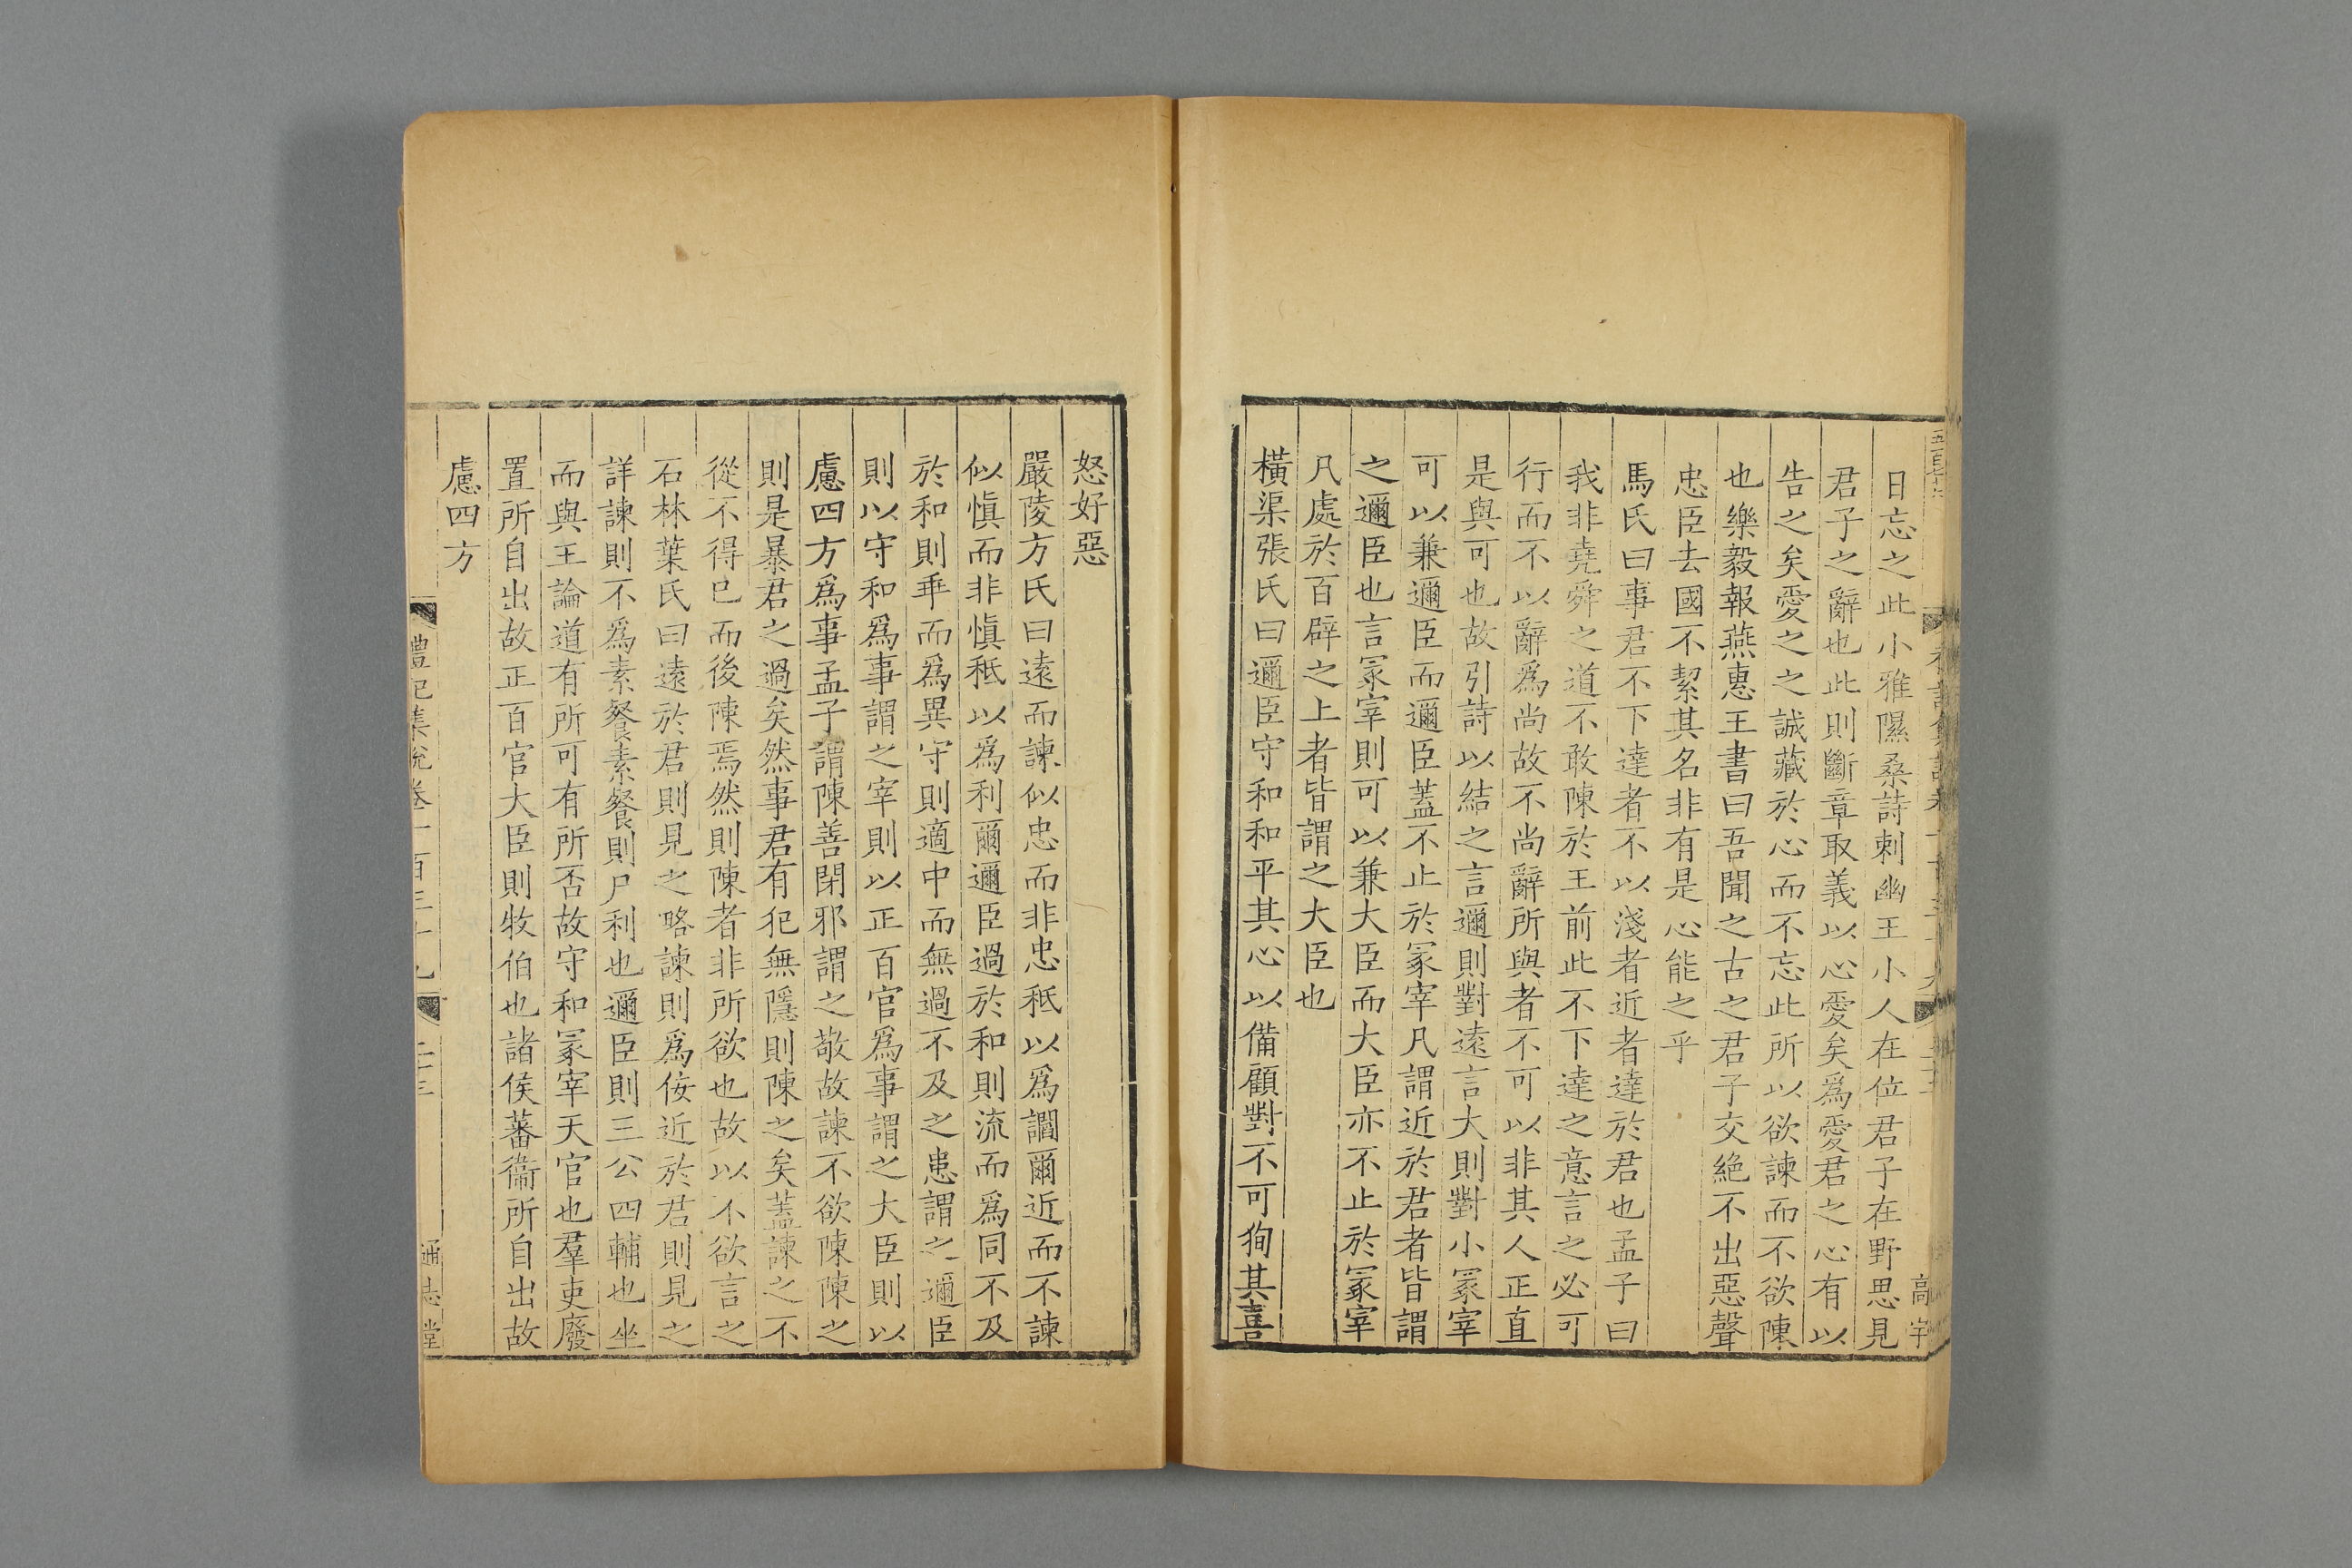 日忘之此小雅隰桑詩刺幽王小人在位君子在野思見
君子之辭也此則斷章取義以心愛矣爲愛君之心有以
告之矣愛之之誠藏於心而不忘此所以欲諫而不欲陳
也樂毅報燕惠王書曰吾聞之古之君子交絶不出惡聲
忠臣去國不絜其名非有是心能之乎
馬氏曰事君不下達者不以淺者近者達於君也孟子曰
我非堯舜之道不敢陳於王前此不下達之意言之必可
行而不以辭爲尚故不尚辭所與者不可以非其人正直
是與可也故引詩以結之言邇則對遠言大則對小冢宰
可以兼邇臣而邇臣蓋不止於冢宰凡謂近於君者皆謂
之邇臣也言冢宰則可以兼大臣而大臣亦不止於冢宰
凡處於百辟之上者皆謂之大臣也
橫渠張氏曰邇臣守和和平其心以備顧對不可狥其喜
怒好惡
嚴陵方氏曰遠而諫似忠而非忠秖以爲讇爾近而不諫
似愼而非愼秖以爲利爾邇臣過於和則流而爲同不及
於和則乖而爲異守則適中而無過不及之患謂之邇臣
則以守和爲事謂之宰則以正百官爲事謂之大臣則以
慮四方爲事孟子謂陳善閉邪謂之敬故諫不欲陳陳之
則是暴君之過矣然事君有犯無隱則陳之矣蓋諫之不
從不得已而後陳焉然則陳者非所欲也故以不欲言之
石林葉氏曰遠於君則見之略諫則爲佞近於君則見之
詳諫則不爲素餐素餐則尸利也邇臣則三公四輔也坐
而與王論道有所可有所否故守和冢宰天官也羣吏廢
置所自出故正百官大臣則牧伯也諸侯蕃衞所自出故
慮四方
禮記集說卷一百三十九
通志堂